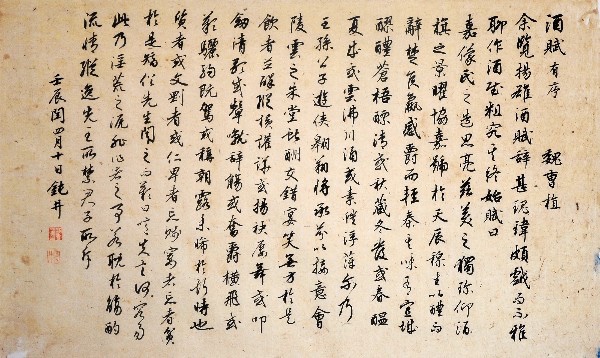 酒賦 有序 魏曹植
余覽揚雄酒賦辭甚瑰瑋頗戲而不雅
聊作酒賦粗究其終始賦曰
嘉儀氏之造思亮茲美之獨珍仰酒
旗之景曜協嘉號於天辰穆生以醴而
辭楚侯嬴感爵而輕秦其味有宜城
醪醴蒼梧縹清或秋藏冬發或春醞
夏成或雲沸川涌或素蟻浮萍尔乃
王孫公子遊俠翱翔將承芬以接意會
陵雲之朱堂獻酬交錯宴笑無方於是
飲者並醉縱橫讙譁或揚袂屢舞或叩
劍清歌或顰蹴辭觴或奮爵橫飛或
歎驪駒既駕或稱朝露未晞於斯時也
質者或文剛者或仁卑者忘賤窶者忘貧
於是矯俗先生聞之而歎曰噫夫言何容易
此乃淫荒之源非作者之事若耽於觴酌
流情縱逸先王所禁君子所斥
壬辰閏四月十日鏡井